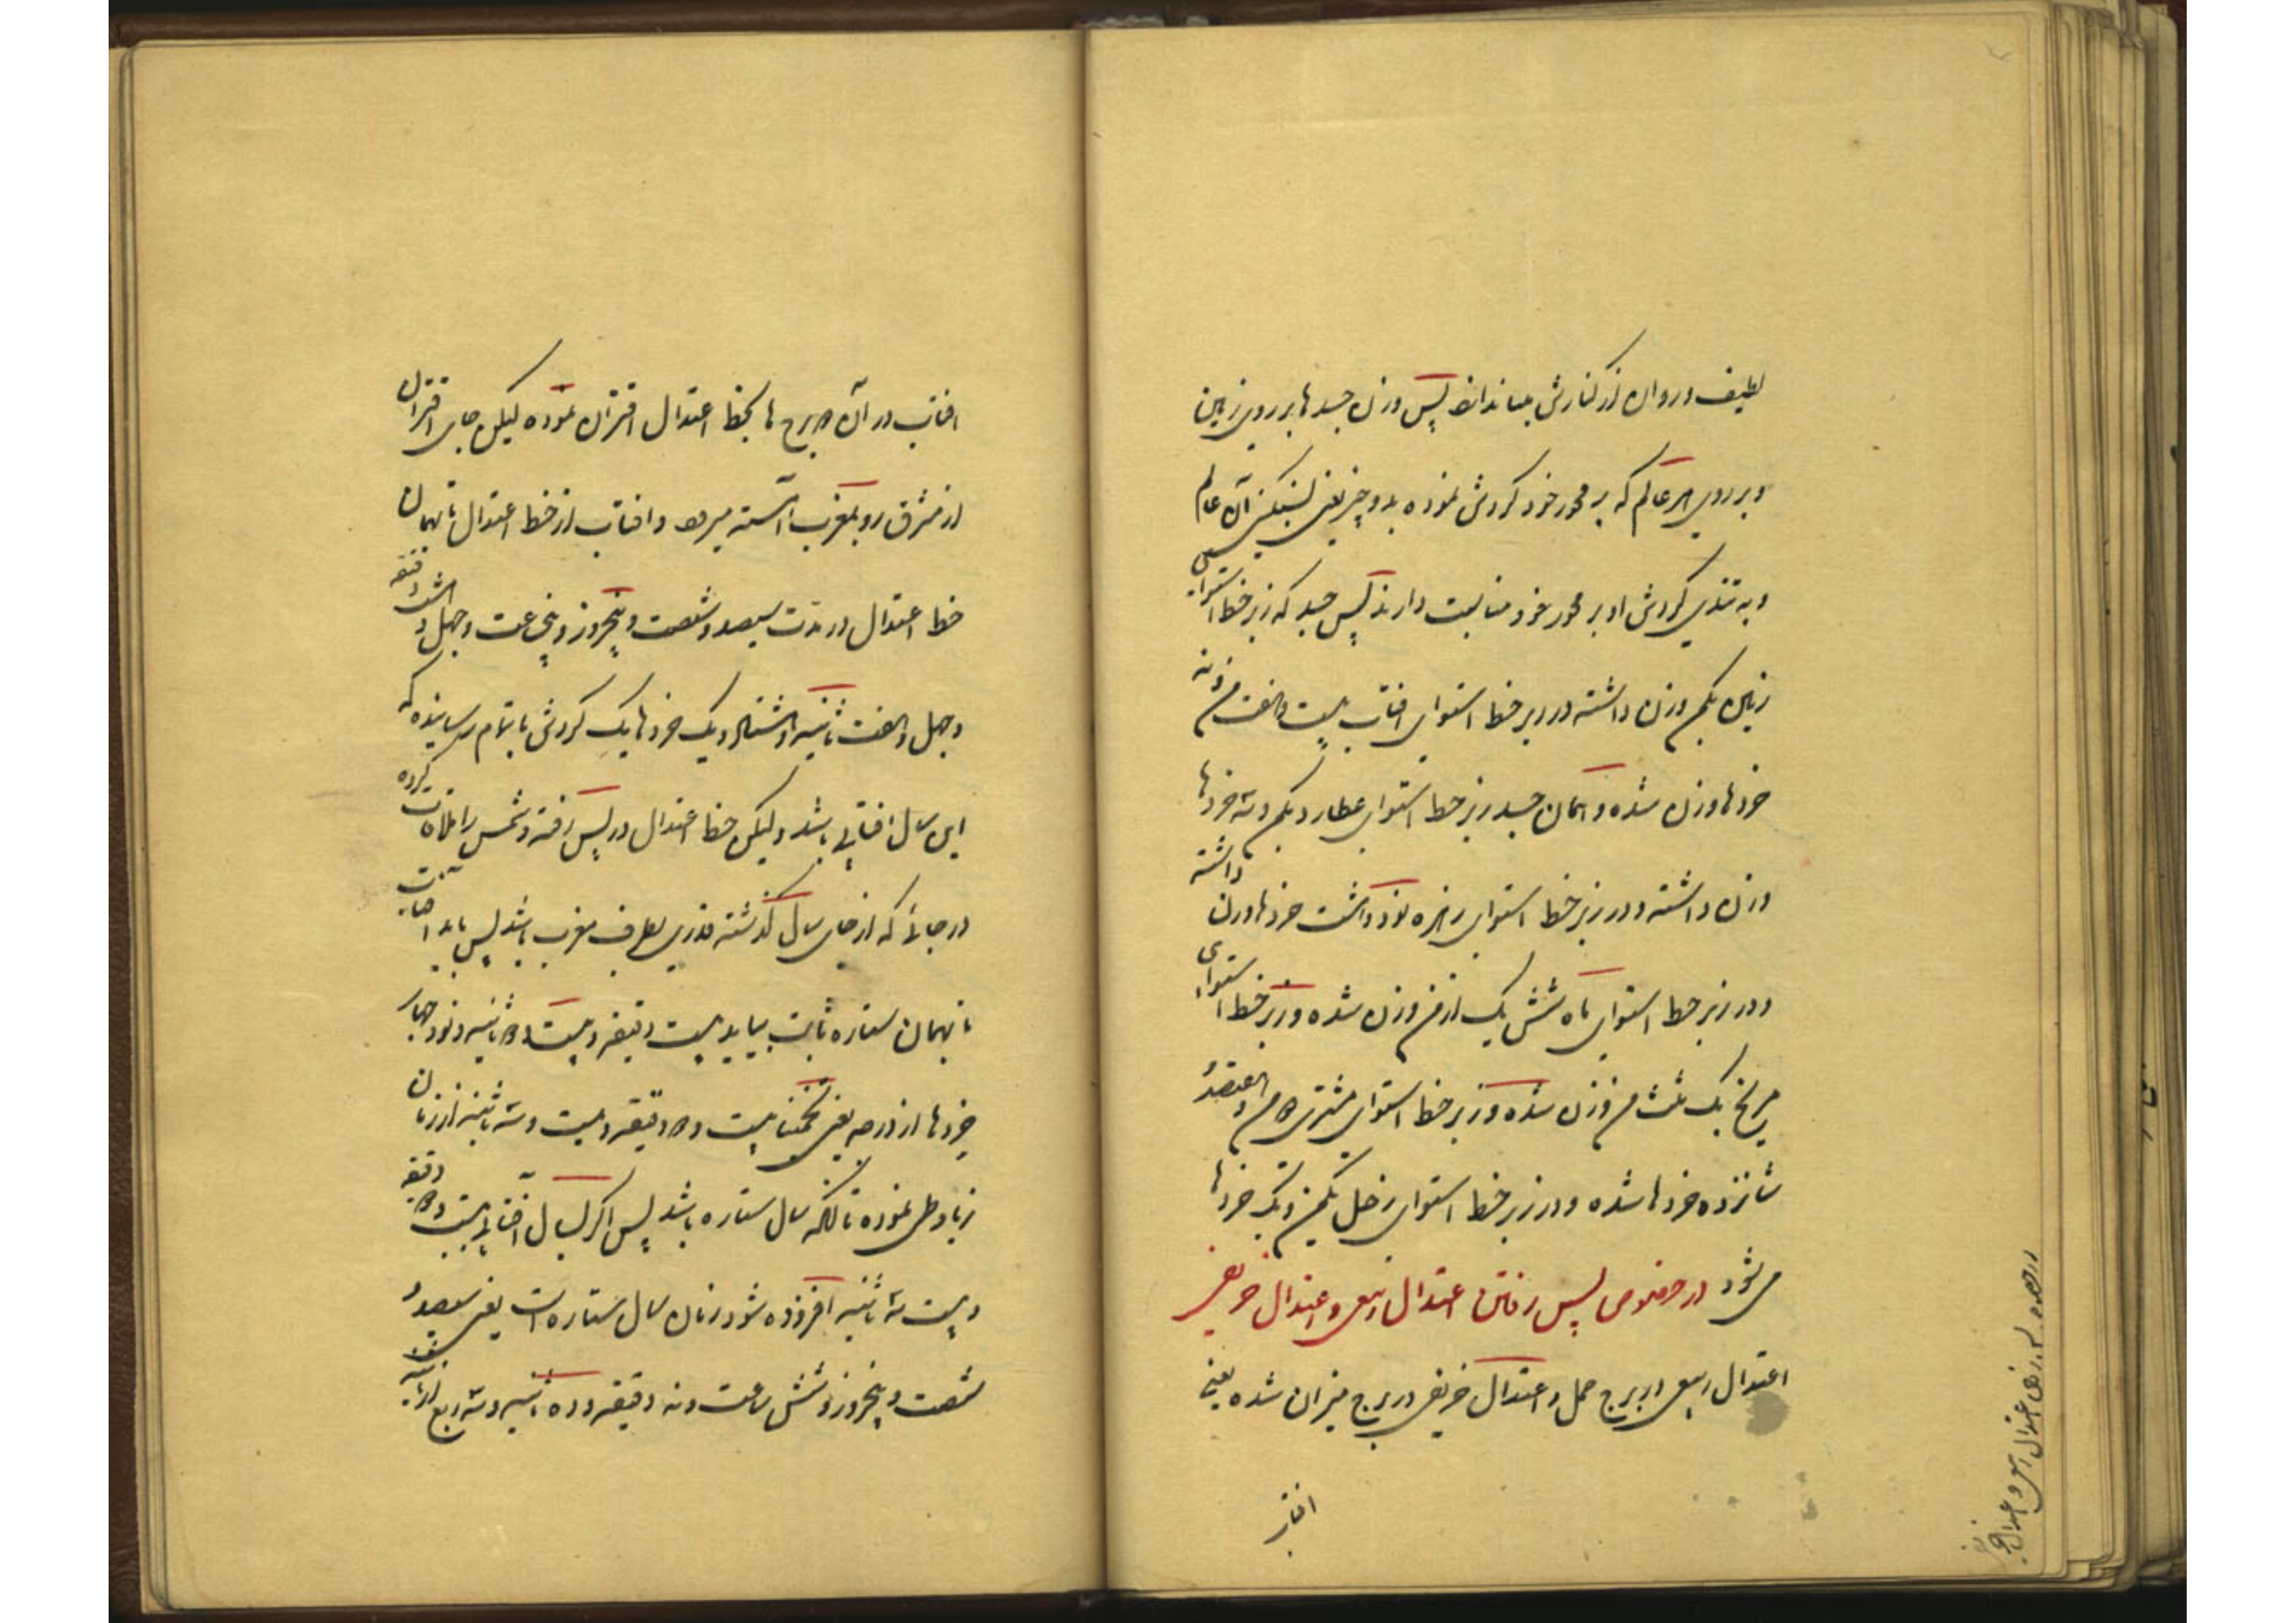 لطیف و روان از کنارش میاندازند پس وزن جسدها بر روی زمین
و بر روی هر عالم که بر محور خود گردش نموده بدو چیز یعنی بسنگینی آن عالم
و به تندی گردش او بر محور خود مناسبت دارند پس جسد که زیر خط استوای
زمین یکمن وزن داشته در زیر خط استوای افتاب بیست و هفت من و نه
خردها وزن شده و همان جسد زیر خط استوای عطارد یکمن و سه خردها
وزن داشته و در زیر خط استوای زهره نود و هشت خردها وزن داشته
و در زیر خط استوای ماه شش یک از من وزن شده و زیر خط استوای
مریخ یک ثلث من وزن شده و زیر خط استوای مشتری من و
شانزده خردها شده و در زیر خط استوای زحل یکمن و یک خردها
می شود در خصوص پس رفتن اعتدال ربیعی و اعتدال خریفی
اعتدال ربیعی در برج حمل و اعتدال خریفی در برج میزان شده یعنی
افتاب
افتاب در آن برج ها بخط اعتدال اقتران نموده لیکن جای اقتران
از مشرق رو بمغرب آهسته میرود و افتاب از خط اعتدال تا بهمان
خط اعتدال در مدت سیصد و شصت و پنجروز و پنج ساعت و چهل و هشت دقیقه
و چهل و هفت ثانیه و یک خردها یک گردش با تمام رسانیده که
این سال افتابی باشد و لیکن خط اعتدال در پس رفته و شمس را ملاقات کرده
در جائی که از جای سال گذشته قدری بطرف مغرب باشد پس باید افتاب
تا بهمان ستاره ثابت بیاید بیست دقیقه و بیست و ثانیه و نود چهار
خردها از درجه یعنی تخمینا بیست و دقیقه و بیست و سه ثانیه از زمان
زیاد طی نموده تا آنکه سال ستاره باشد پس اگر بسال افتابی بیست و دقیقه
و بیست سه ثانیه افزوده شود زمان سال ستاره است یعنی سیصد و
شصت و پنجروز و شش ساعت و نه دقیقه و ده ثانیه و سه ربع از ثانیه